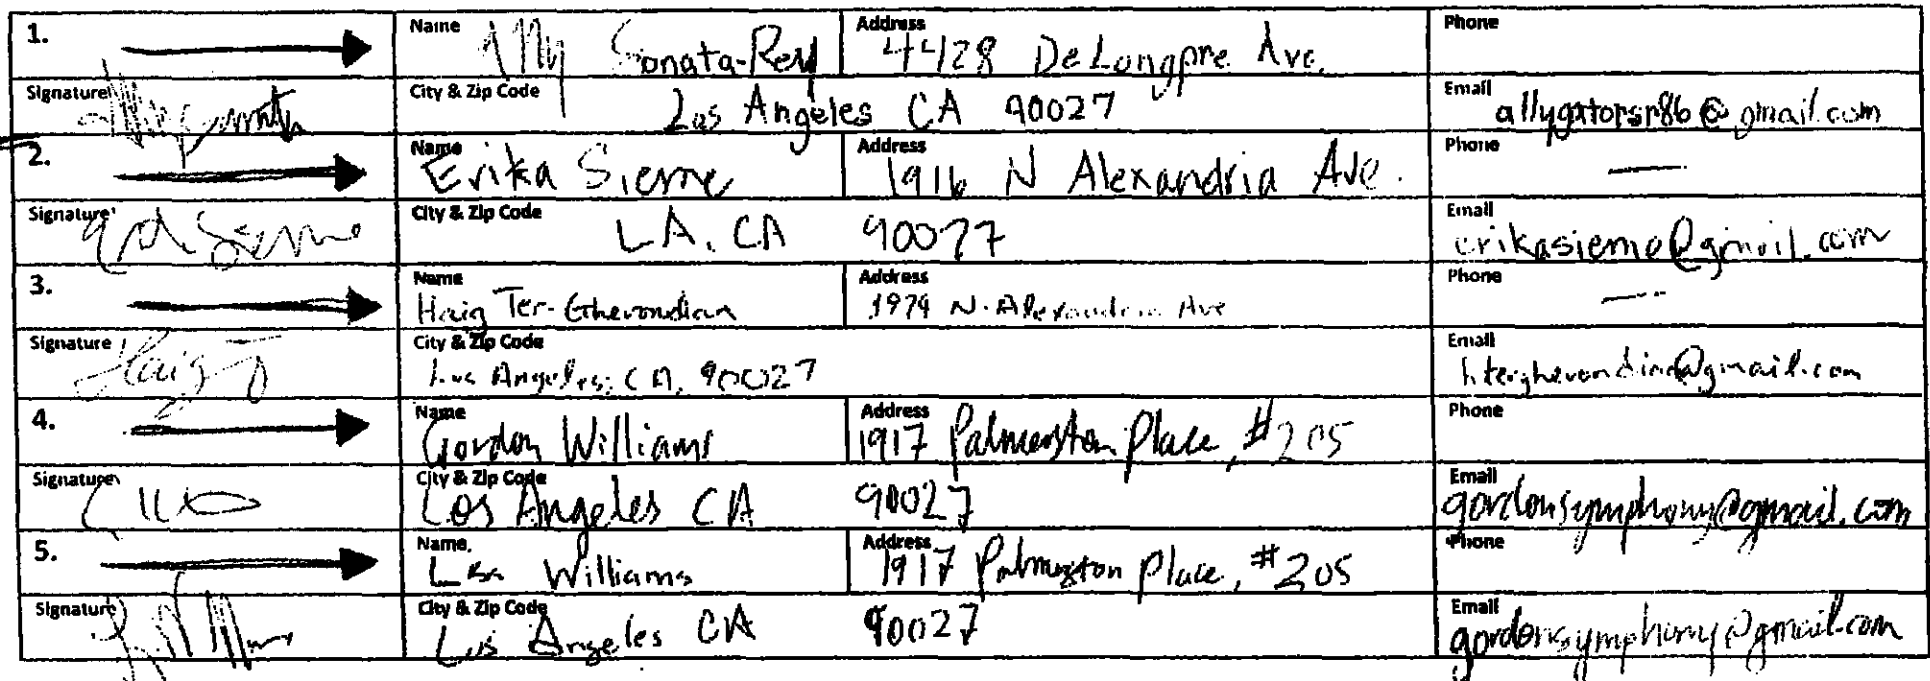 1. Name Ally Sonata-Rey Address 4428 DeLongpre Ave. Phone
Signature City & Zip Code Los Angeles CA 90027 Email allygatorsr86@gmail.com
2. Name Erika Sierre Address 1916 N Alexandria Ave. Phone —
Signature City & Zip Code LA, CA 90027 Email
3. Name Haig Ter-Ghevondian Address 1974 N. Alexandria Ave Phone —
Signature Haig T City & Zip Code Los Angeles, CA, 90027 Email hterghevondian@gmail.com
4. Name Gordon Williams Address 1917 Palmerston Place, #205 Phone
Signature City & Zip Code Los Angeles CA 90027 Email gordonsymphony@gmail.com
5. Name Williams Address 1917 Palmerston Place, #205 Phone
Signature City & Zip Code Los Angeles CA 90027 Email gordonsymphony@gmail.com